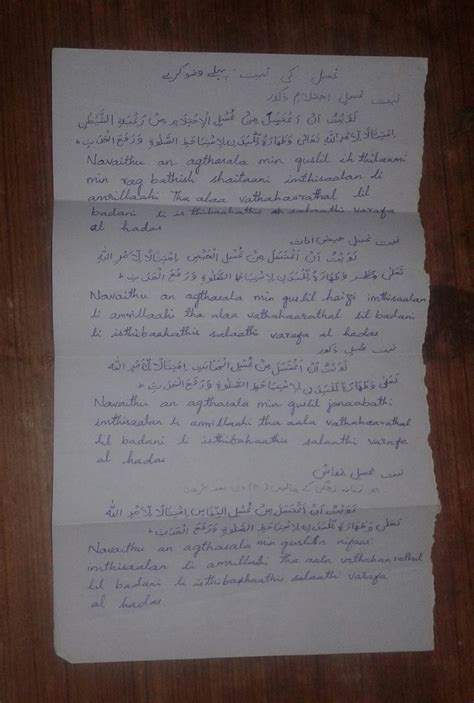 غسل کی نیت پہلے وضو کرے
نیت غسل احتلام ذکور
نَوَيْتُ اَنْ اَغْتَسِلَ مِنْ غُسْلِ الْاِحْتِلَامِ مِنْ الشَّيْطٰنِ
اِمْتِثَالًا لِاَمْرِ اللهِ تَعَالٰى وَطَهَارَةً لِلْبَدَنِ لِاِسْتِبَاحَةِ الصَّلٰوةِ وَرَفْعِ الْحَدَثِ
Navaithu an agthasala min guslil ih thilaami
min rag bathish shaitaani imthisaalan li
amrillaahi tha alaa vathahaarathal lil
badani li isthibaahathis salaathi varafa
al hadas
نیت غسل حیض
نَوَيْتُ اَنْ اَغْتَسِلَ مِنْ غُسْلِ الْحَيْضِ اِمْتِثَالًا لِاَمْرِ اللهِ
تَعَالٰى وَطَهَارَةً لِلْبَدَنِ لِاِسْتِبَاحَةِ الصَّلٰوةِ وَرَفْعِ الْحَدَثِ
Navaithu an agthasala min guslil haizi imthisaalan
li amrillaahi tha alaa vathahaarathal lil badani
li isthibaahathis salaathi varafa al hadas
نیت غسل ذکور
نَوَيْتُ اَنْ اَغْتَسِلَ مِنْ غُسْلِ الْجَنَابَةِ اِمْتِثَالًا لِاَمْرِ اللهِ
تَعَالٰى وَطَهَارَةً لِلْبَدَنِ لِاِسْتِبَاحَةِ الصَّلٰوةِ وَرَفْعِ الْحَدَثِ
Navaithu an agthasala min guslil janaabathi
imthisaalan li amrillaahi tha aala vathahaarathal
lil badani li isthibahaathis salaathi varafa
al hadas
نیت غسل نفاس
نَوَيْتُ اَنْ اَغْتَسِلَ مِنْ غُسْلِ النِّفَاسِ اِمْتِثَالًا لِاَمْرِ اللهِ
تَعَالٰى وَطَهَارَةً لِلْبَدَنِ لِاِسْتِبَاحَةِ الصَّلٰوةِ وَرَفْعِ الْحَدَثِ
Navaithu an agthasala min guslin nifaasi
imthisaalan li amrillaahi tha aala vathahaarathal
lil badani li isthibaahaathis salaathi varafa
al hadas